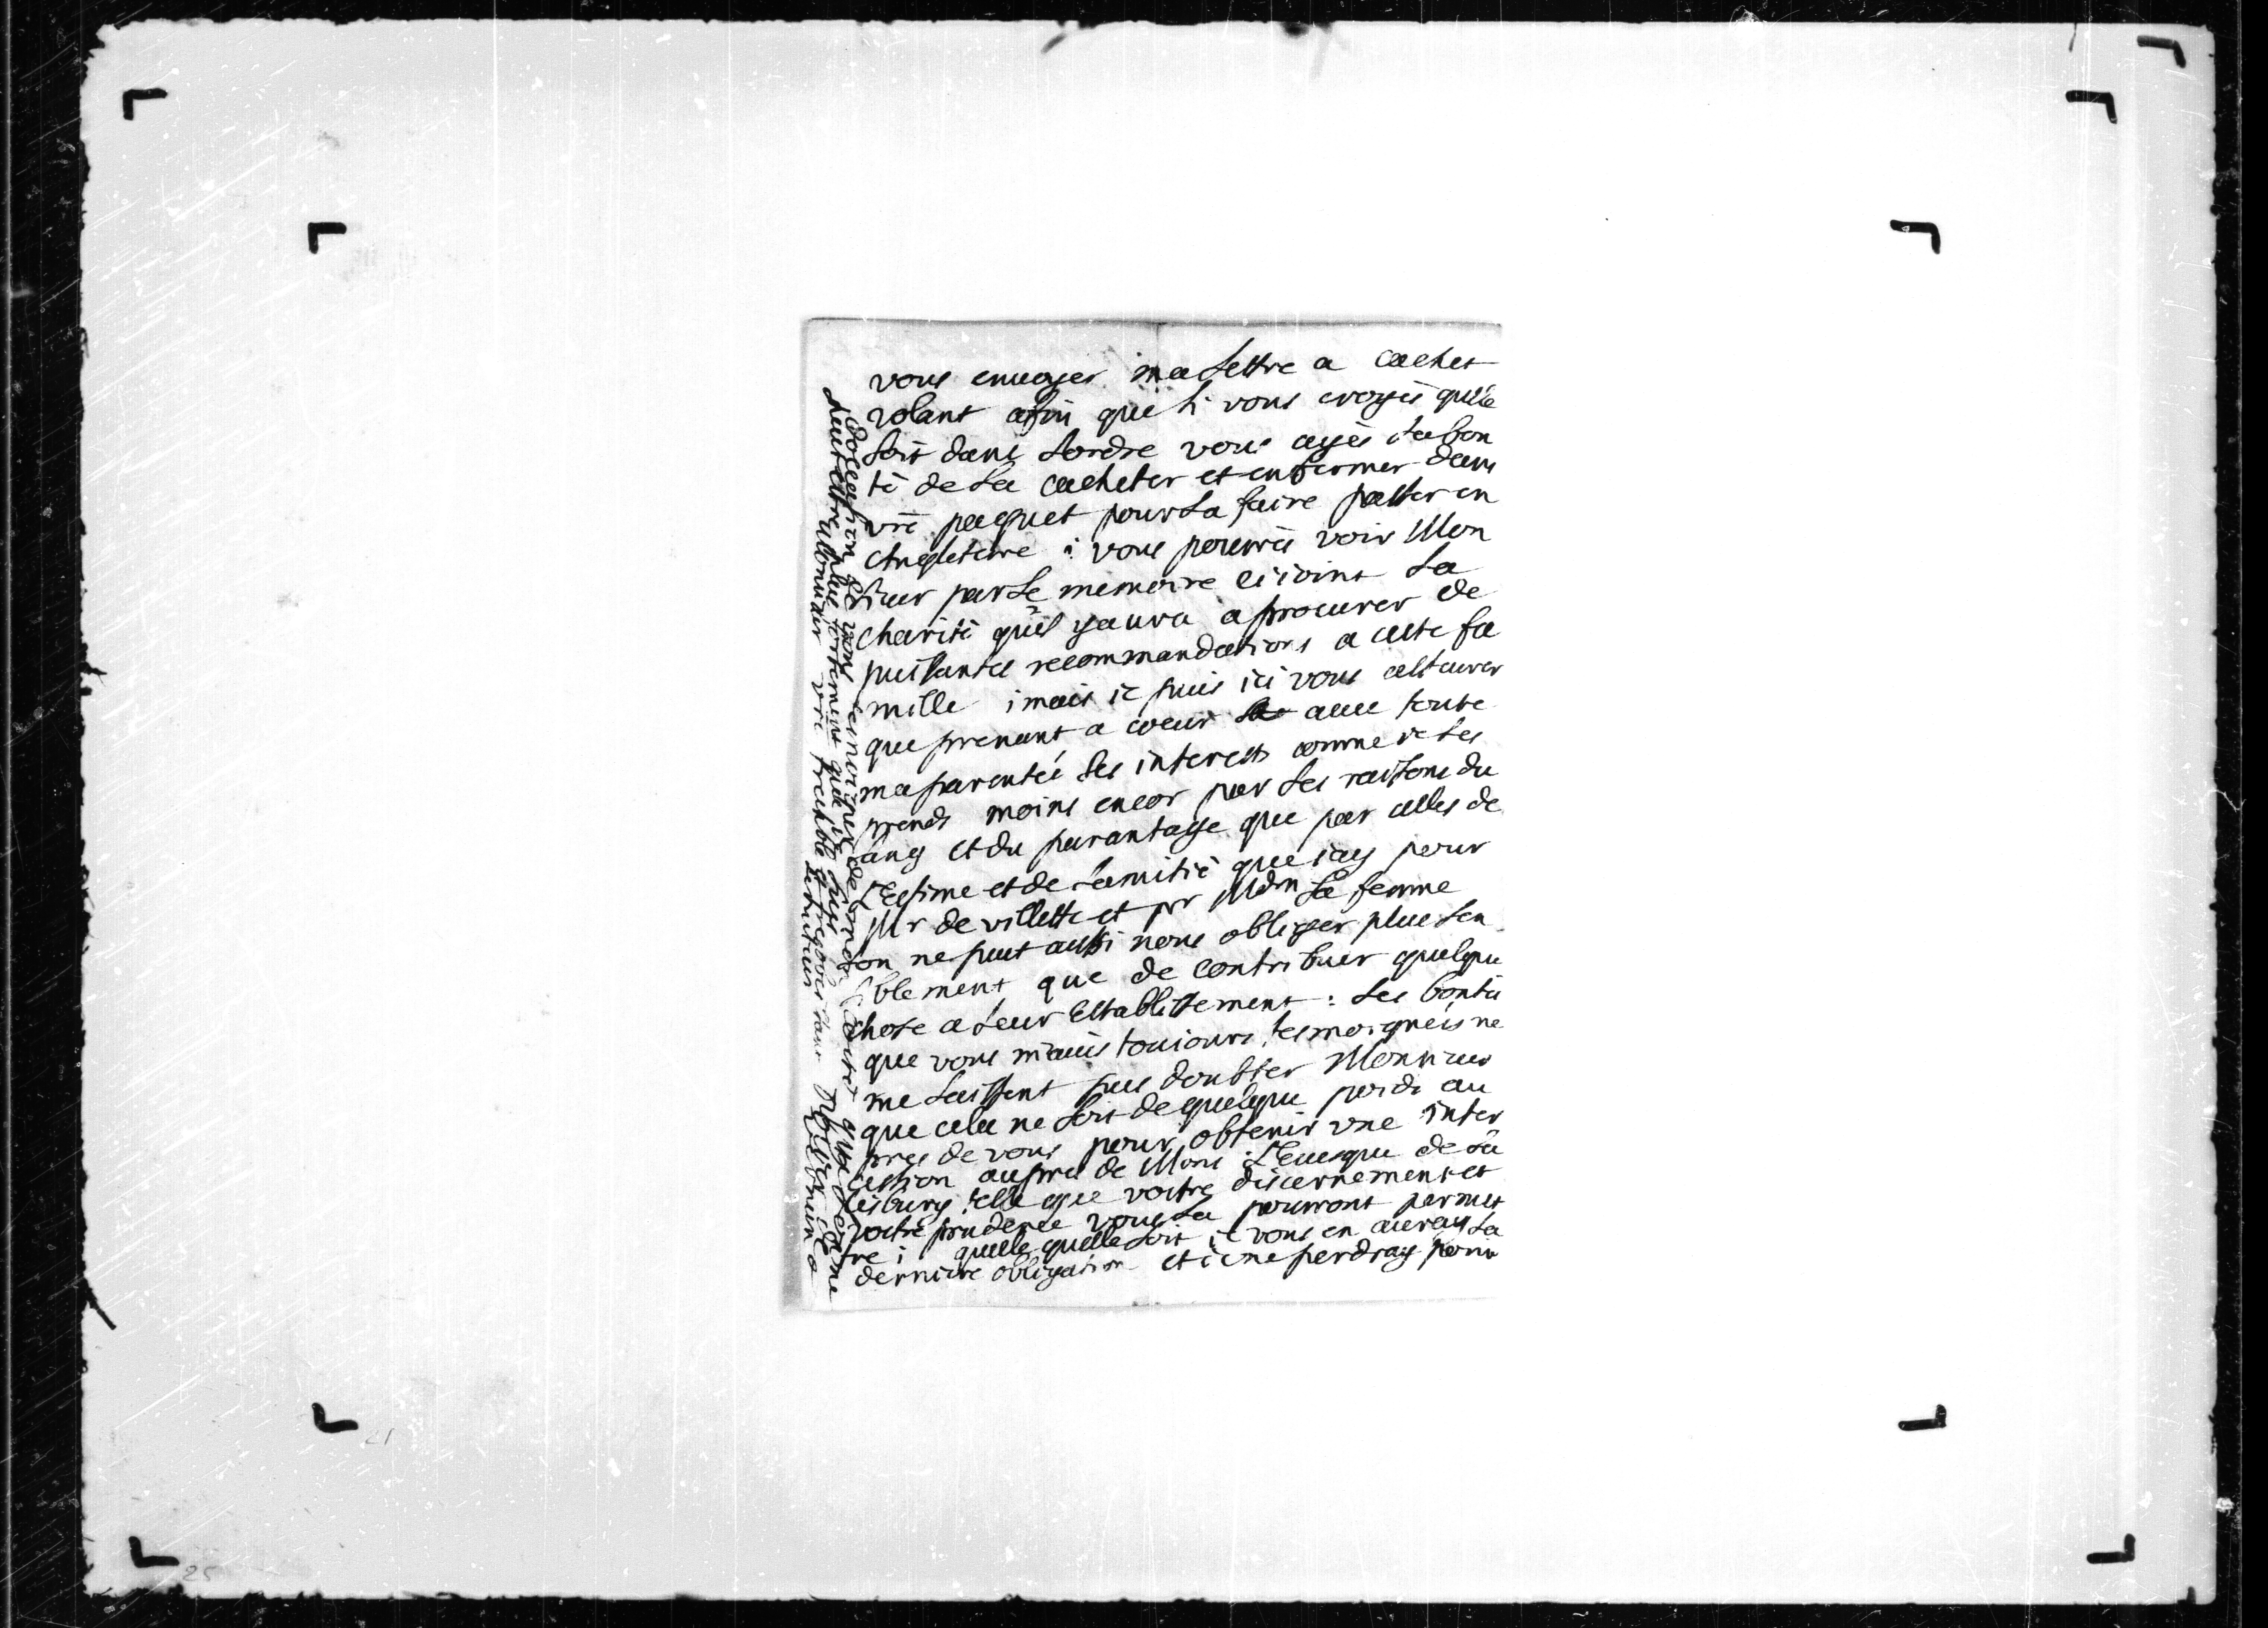 vous enuoyer ma Lettre a cachet
volant afin que si vous croyés qu'elle
soit dans Lordre vous ayés La bon
té de La cacheter et enfermer dans
vre paquet pour La faire passer en
Angleterre : vous pourrés voir Mon
sieur par Le memoire ci ioint La
charité quil y aura a procurer de
puissantes recommandations a cette fa
mille ; mais ie puis ici vous asseurer
que prenant a coeur auec toute
ma parentée Ses interests comme ie Les
prends moins encor par Les raisons du
sang et du parantage que par celles de
L'Estime et de Lamitié que iay pour
Mr de villette et pr Mdm Sa femme
on ne peut aussi nous obliger plus sen
siblement que de contribuer quelque
chose a Leur Establissement : Les bontés
que vous m'aués toujours tesmoignéés ne
me Laissent pas doubter Monsieur
que cela ne soit de quelque poids au
pres de vous pour obtenir vne inter
cession aupres de Mons : L'Euesque de Sa
lisburg telle que vostre discernement et
vostre prudence vous La pourront permet
tre ; quelle quelle soit ie vous en auray La
derniere obligation et ie ne perdray point
d'occasion de vous
peut estre plus fortement que ie
Monsieur vre treshble et tresobeissant
seruiteur